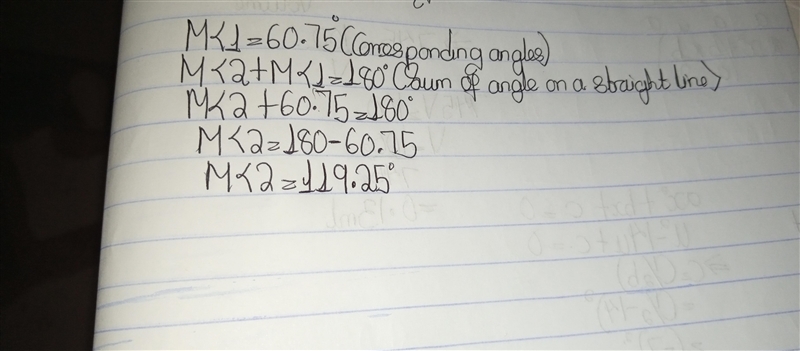 M<1=60.75°(Corresponding angles)
M<2+M<1=180°(Sum of angle on a straight line)
M<2+60.75=180°
M<2=180-60.75
M<2=119.25°